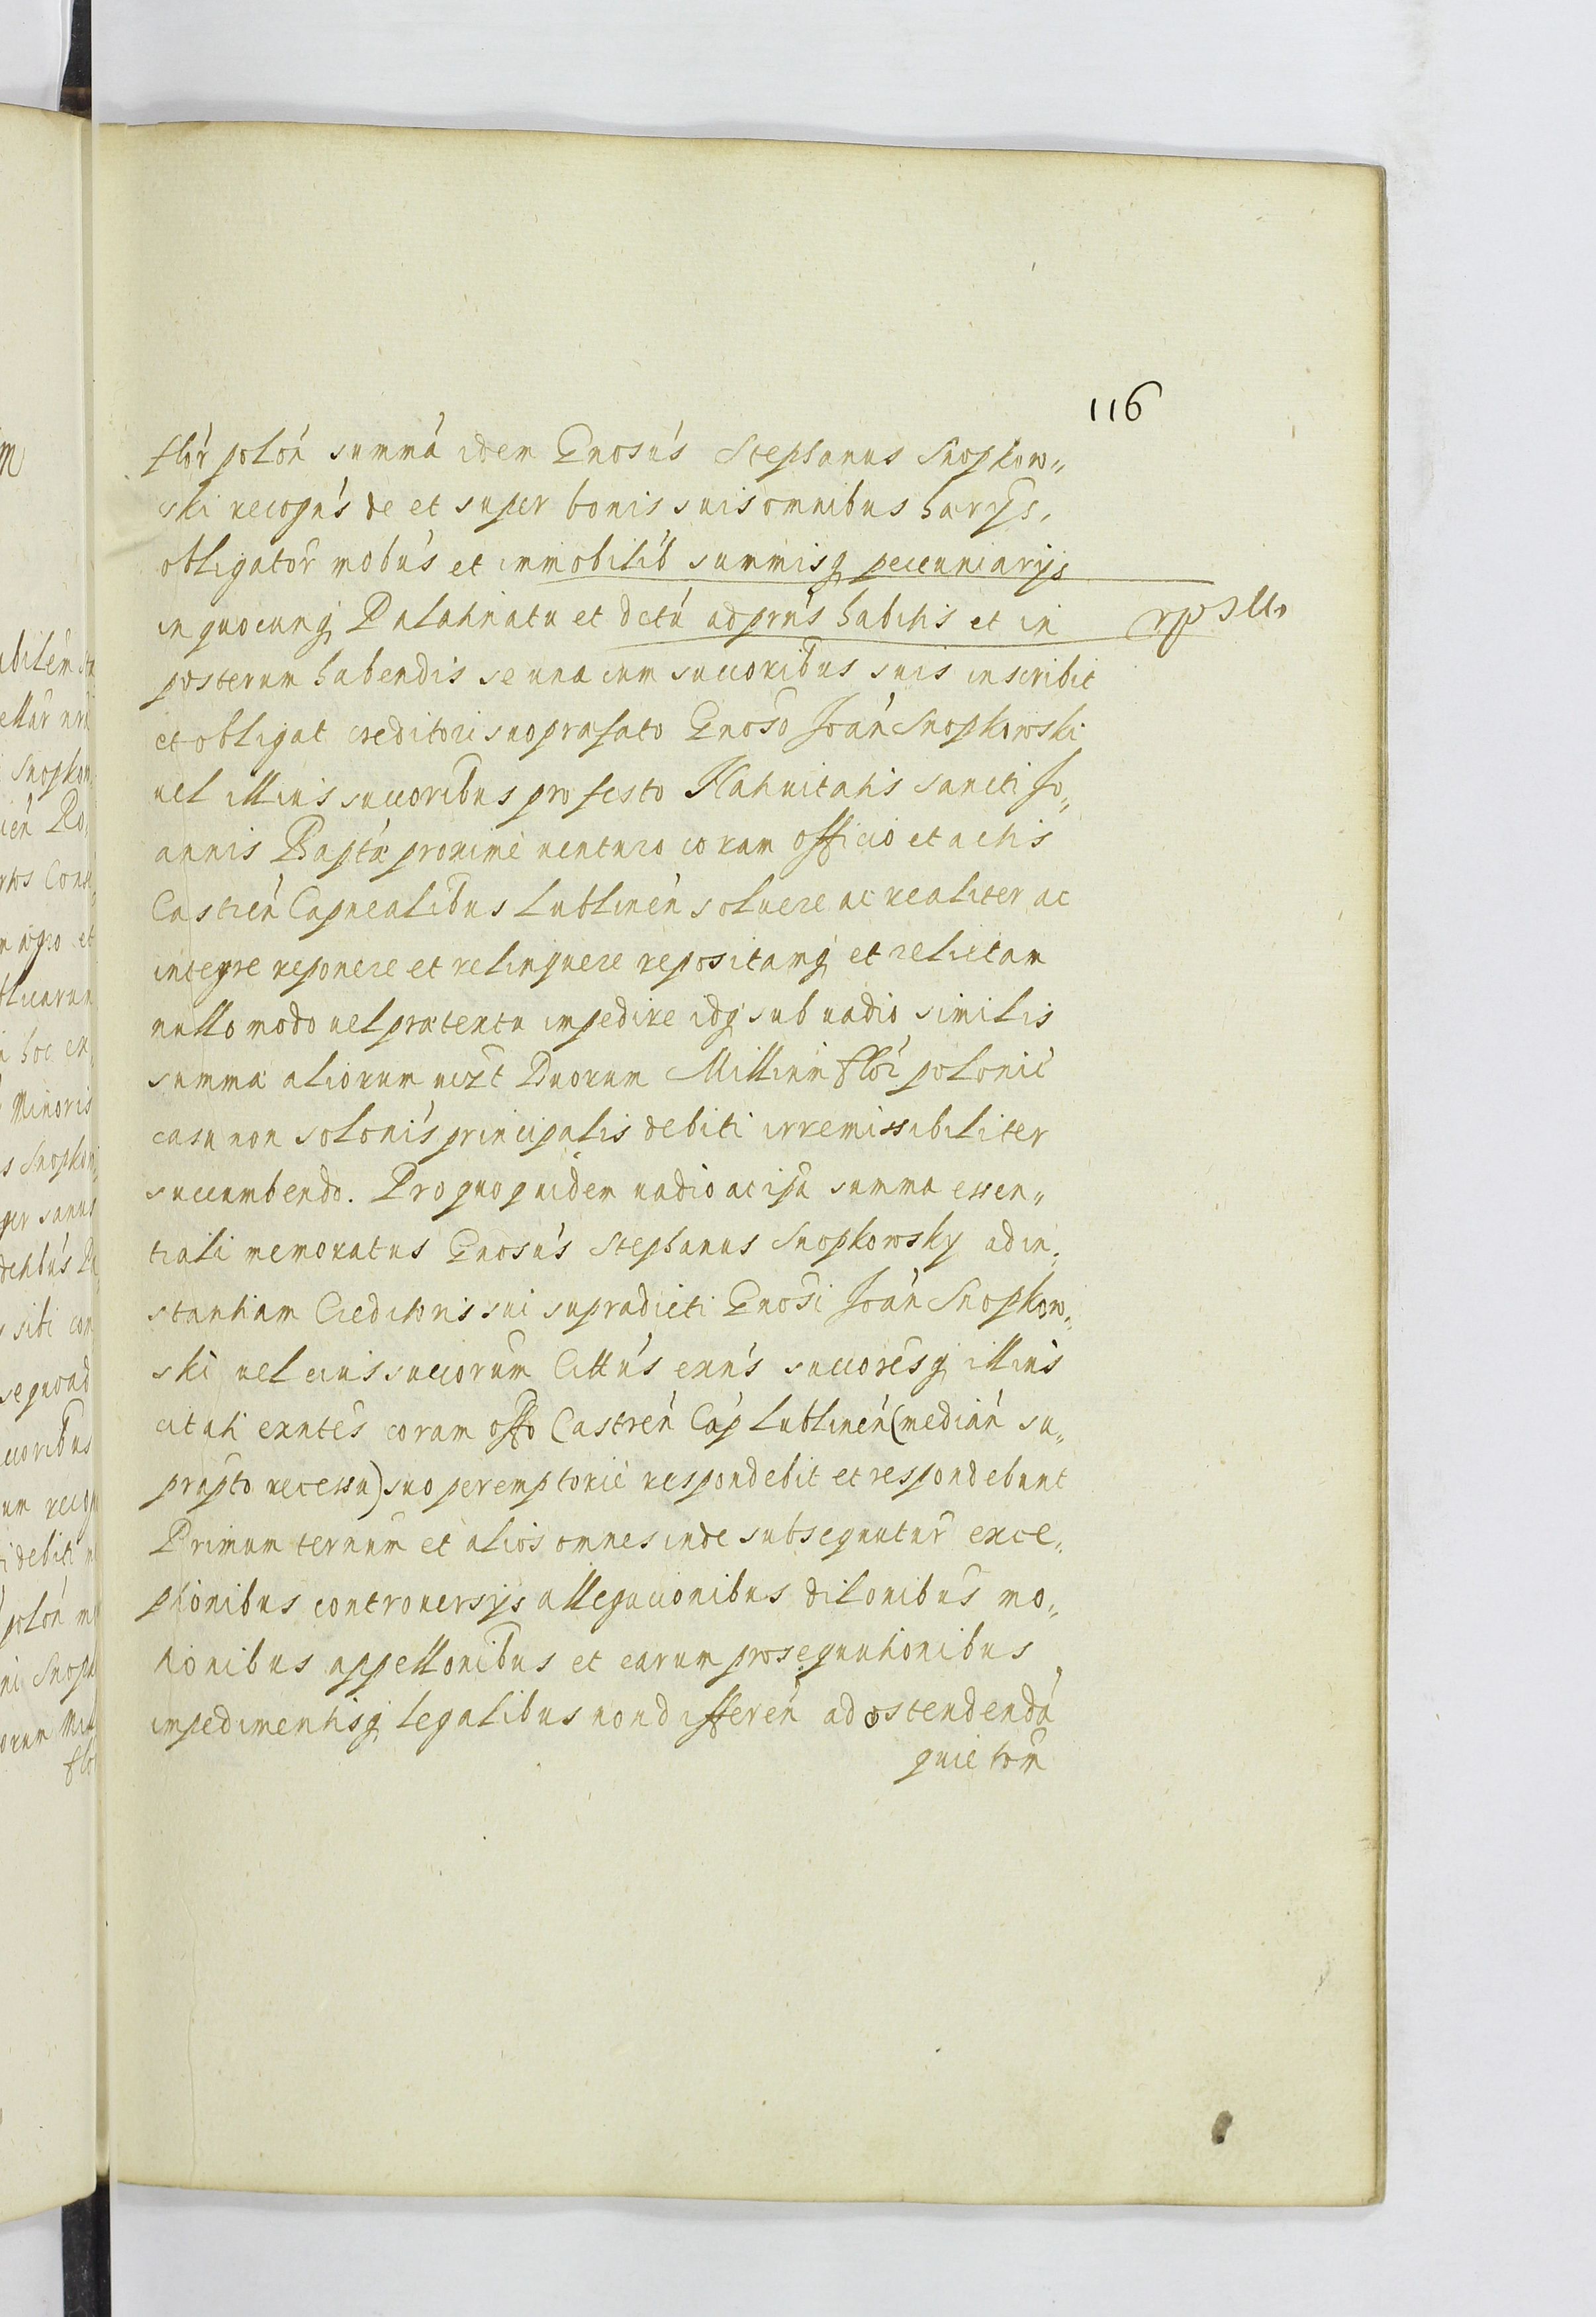 116
flor polon summa idem Gnosus Stephanus Snopkow„
ski recogns de et super bonis suis omnibus harijs,
obligator mobus et immobilib summisq pecuniarijs
in quocunq Palatinatu et dctu ad prns habitis et in
posterum habendis se una cum succoribus suis inscribit
et obligat creditori suo præfato Gnoso Joan Snopkowski
uel illius succoribus pro festo Natiuitatis Sancti Jo„
annis Bapta proxime uenturo coram officio et actis
Castren Capnealibus Lublinen soluere ac realiter ac
integre reponere et relinquere repositamq et relictam
nullo modo uel prætextu impedire idq sub uadio similis
summa aliorum uizt Duorum Millium flor polonic
casu non solonis principalis debiti irremissibiliter
succumbendo. Pro quo quidem uadio ac ipsa summa essen„
tiali memoratus Gnosus Stephanus Snopkowsky ad in„
stantiam Creditoris sui supradicti Gnosi Joan Snopkow„
ski uel eius succorum Cittus exns succoresq illius
citati exntes coram offo Castren Cap Lublinen (median su„
prapto recessu) suo peremptorie respondebit et respondebunt
Primum ternum et alios omnes inde subsequutur exce„
ptionibus controuersijs allegacionibus dilonibus mo„
tionibus appellonibus et earum prosequutionibus
impedimentisq legalibus non differen ad ostendenda
quietom